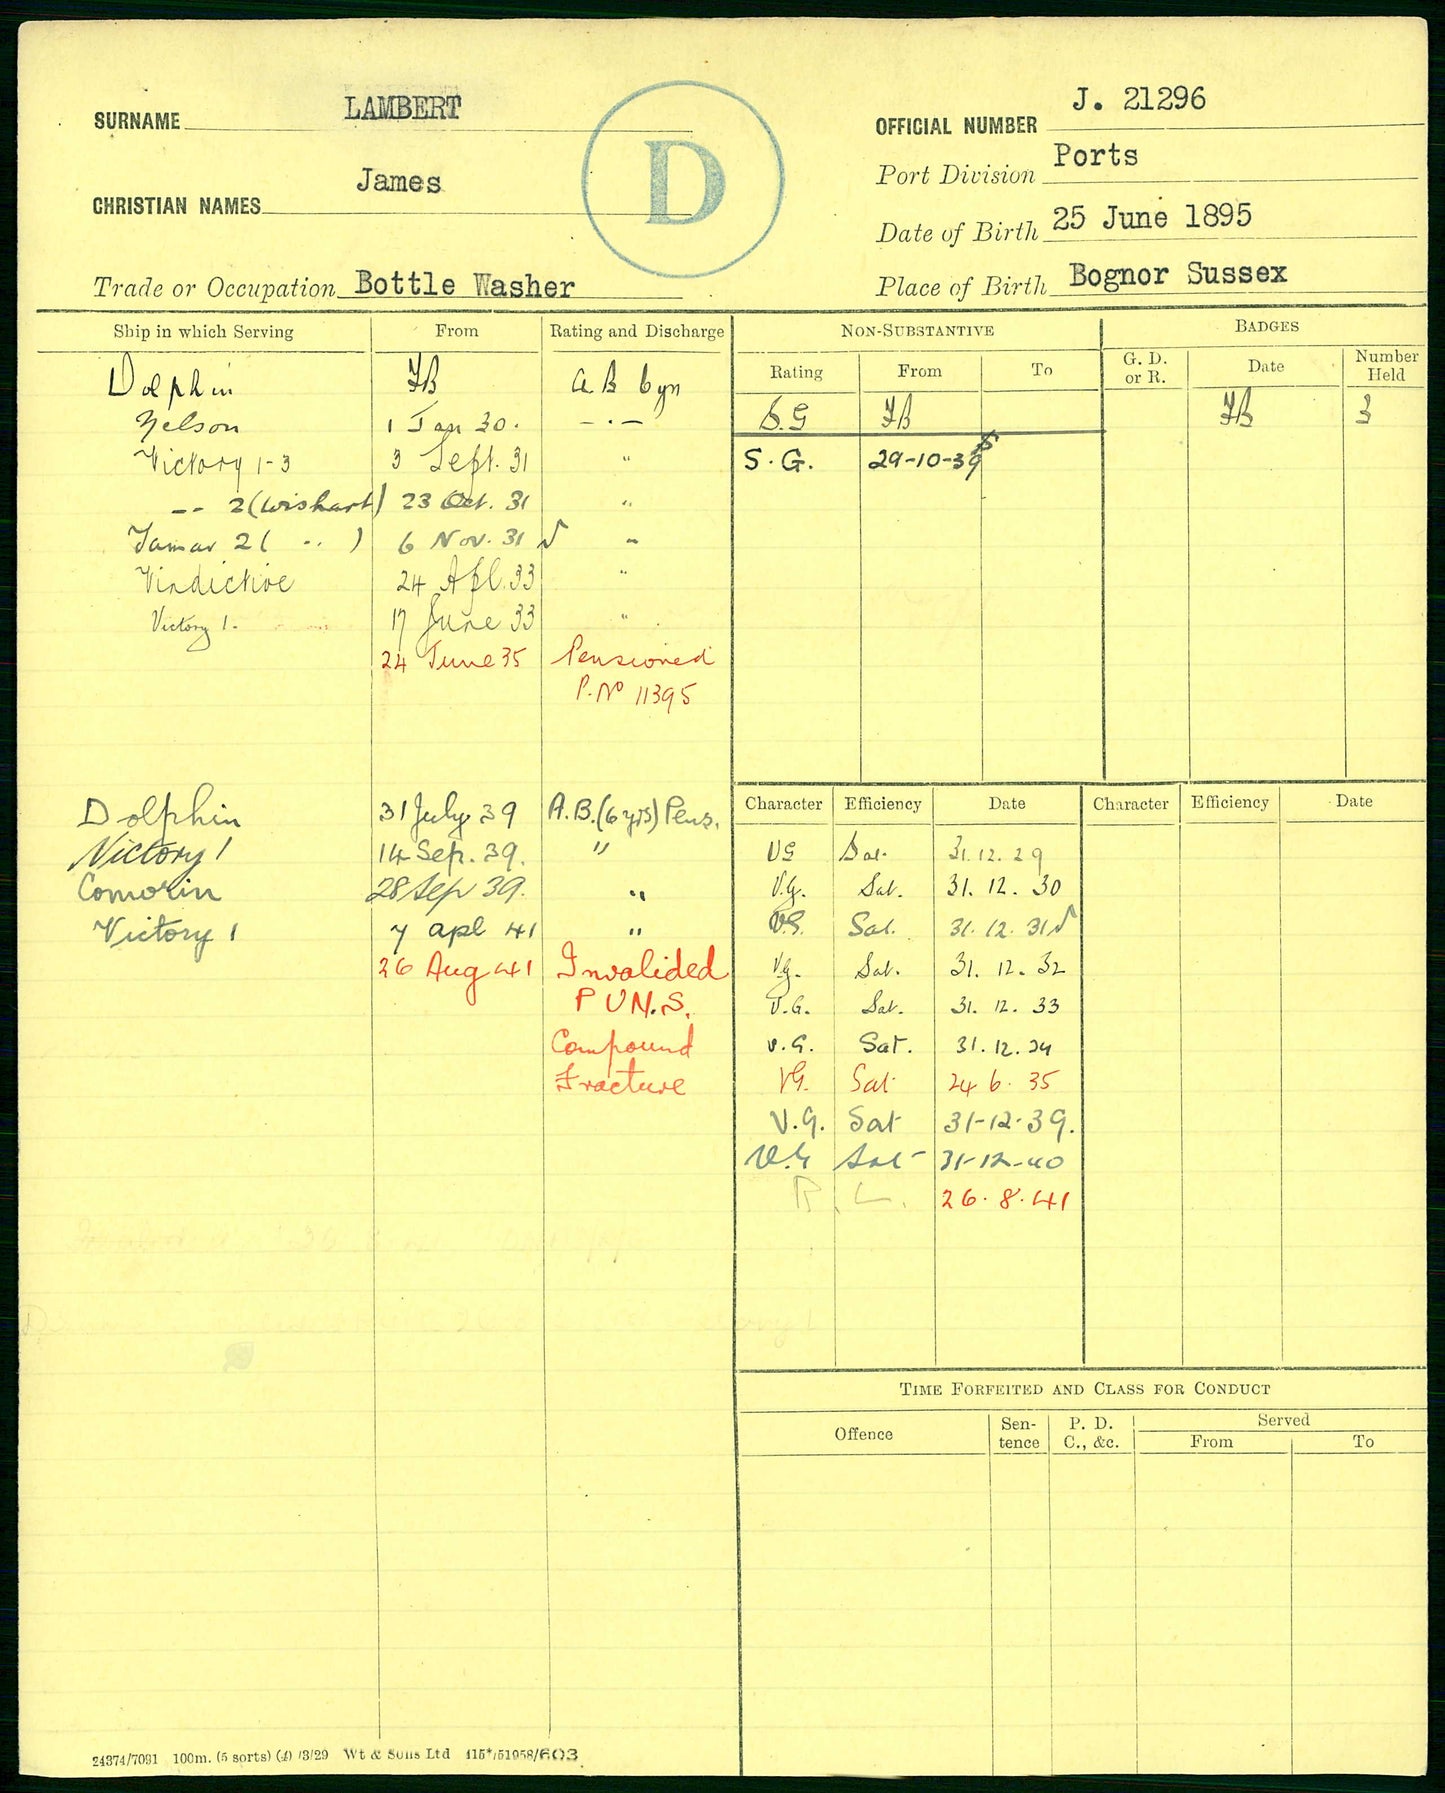 SURNAME LAMBERT
CHRISTIAN NAMES James
Trade or Occupation Bottle Washer
D
OFFICIAL NUMBER J. 21296
Port Division Ports
Date of Birth 25 June 1895
Place of Birth Bognor Sussex
Ship in which Serving From Rating and Discharge
Dolphin FB A B 6yn
Nelson 1 Jan 30. -·-
Victory 1-3 3 Sept. 31 "
-- 2 (Wishart) 23 Oct. 31 "
Tamar 2 ( " ) 6 Nov. 31 "
Vindictive 24 Apl. 33 "
Victory 1. 17 June 33 "
24 June 35 Pensioned
P. No 11395
Dolphin 31 July 39 A.B. (6 yrs) Pens.
Victory 1 14 Sep. 39. "
Comorin 28 Sep 39. "
Victory 1 7 apl 41 "
26 Aug 41 Invalided
P U N. S.
Compound
Fracture
NON-SUBSTANTIVE
Rating From To
S.G FB
S.G. 29-10-39
BADGES
G. D. or R. Date Number Held
FB 3
Character Efficiency Date Character Efficiency Date
VG Sat. 31.12.29
V.g. Sat. 31. 12. 30
VG. Sat. 31. 12. 31
Vg. Sat. 31. 12. 32
V.G. Sat. 31. 12. 33
V.G. Sat. 31.12.34
VG. Sat 24 6. 35
V.G. Sat 31-12-39.
V.G Sat 31-12-40
R. L. 26.8.41
TIME FORFEITED AND CLASS FOR CONDUCT
Offence Sen-tence P. D. C., &c. Served
From To
24374/7091 100m. (5 sorts) (4) /3/29 Wt & Sons Ltd 415*/51958/603